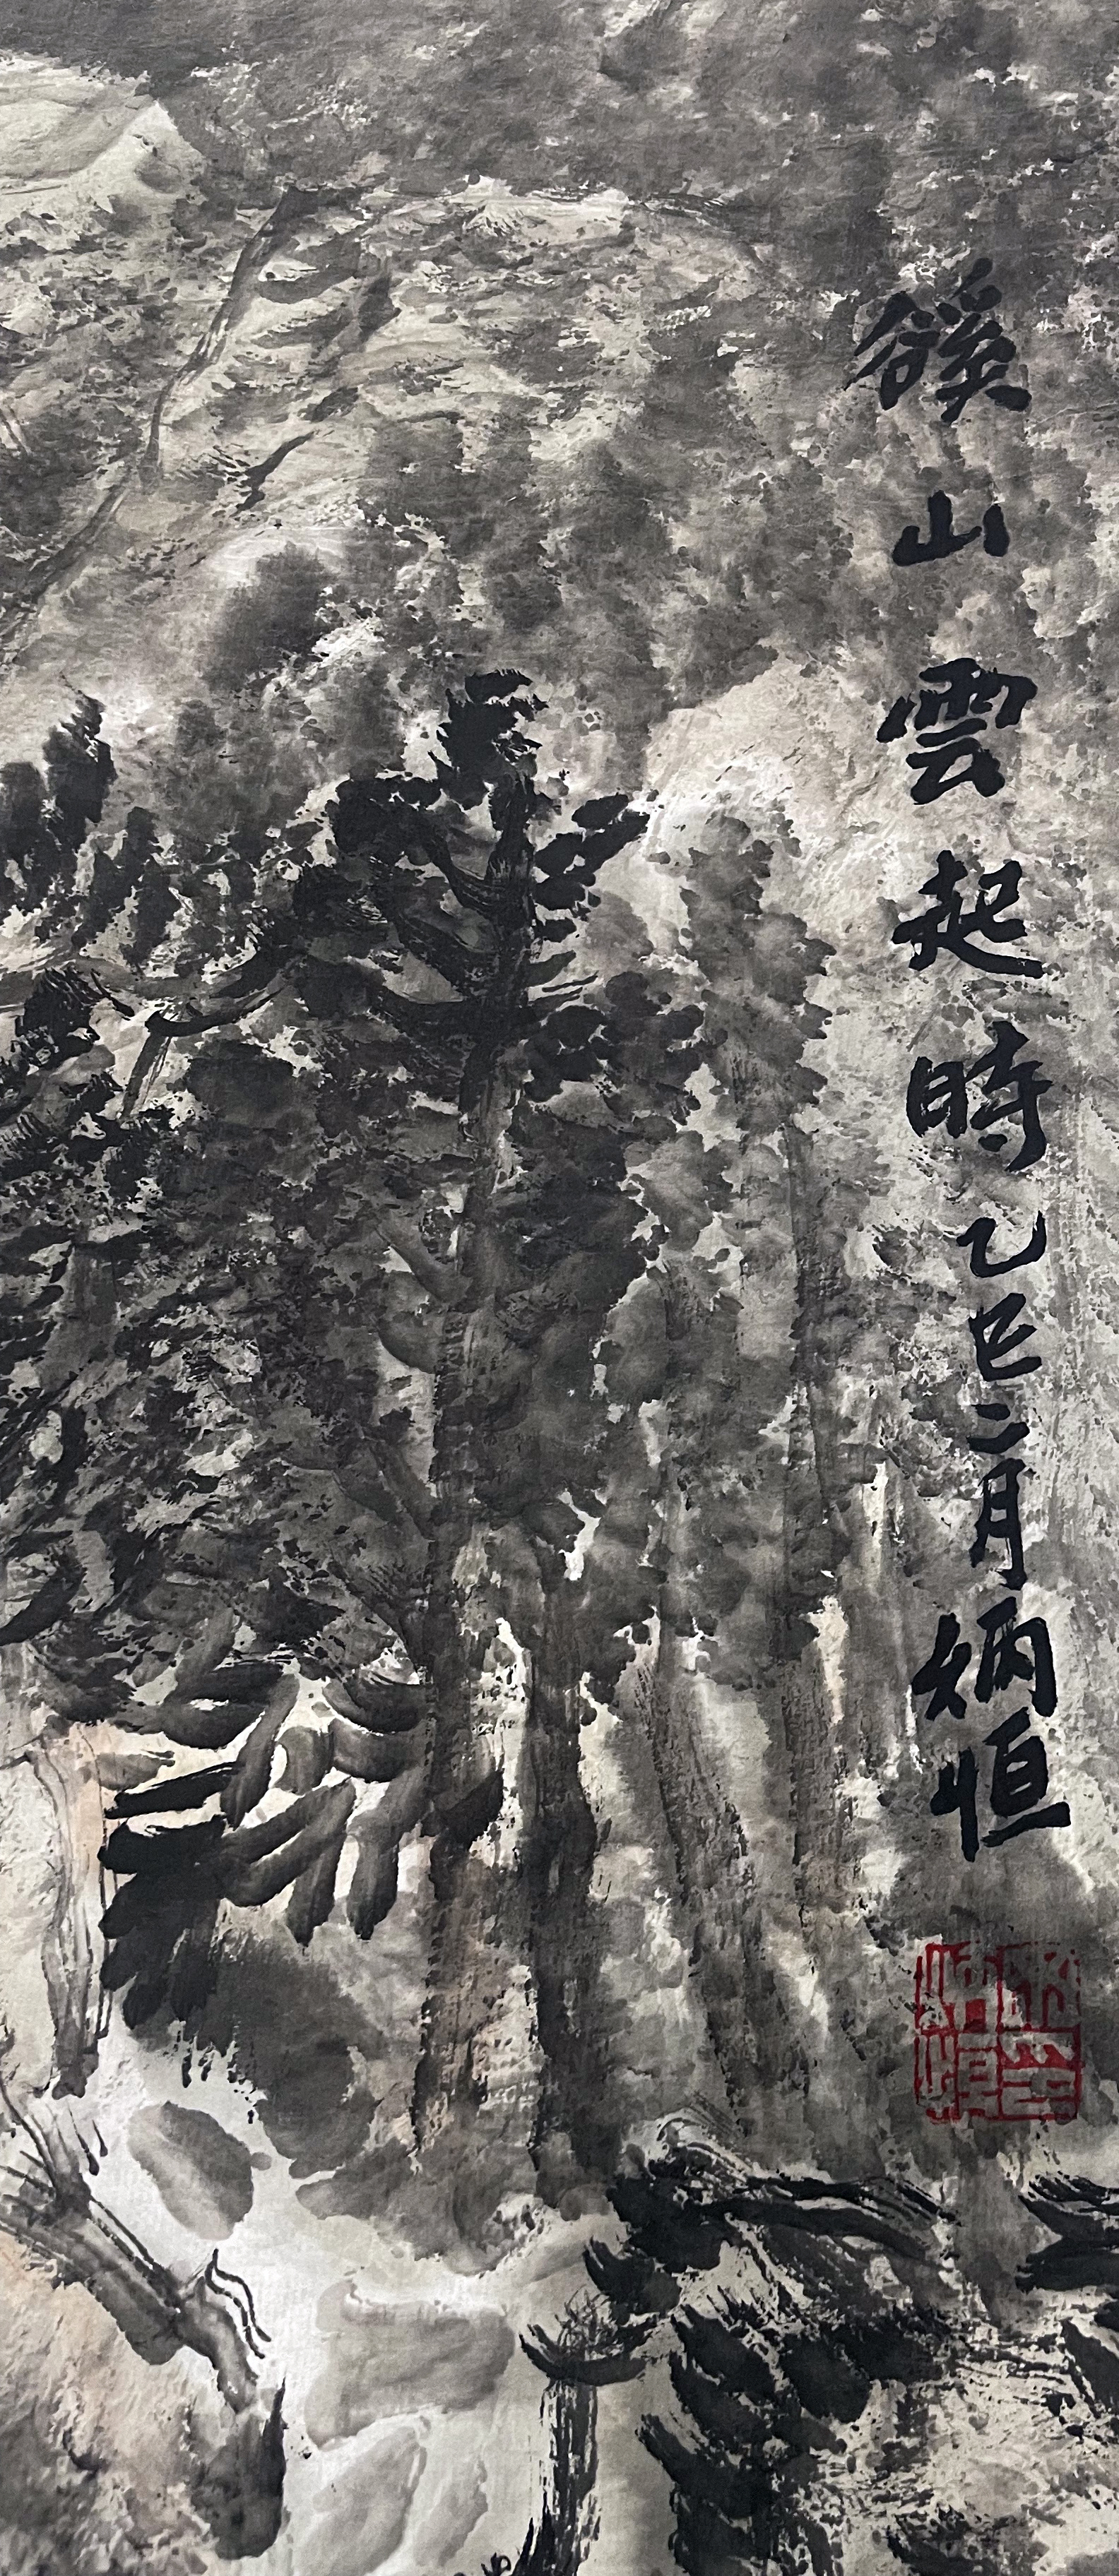 谿山雲起時乙巳二月炳恒